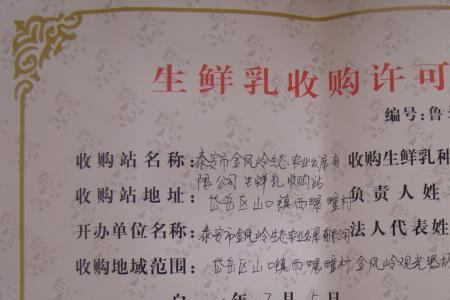 生鲜乳收购许可
编号:鲁
收购站名称:泰安市金凤岭生态农业发展有 收购生鲜乳种
限公司生鲜乳收购站
收购站地址: 岱岳区山口镇西 村 负责人姓
开办单位名称:泰安市金凤岭生态农业发展有限公司 法人代表姓
收购地域范围: 岱岳区山口镇西 村金凤岭观光
自 年 月5日